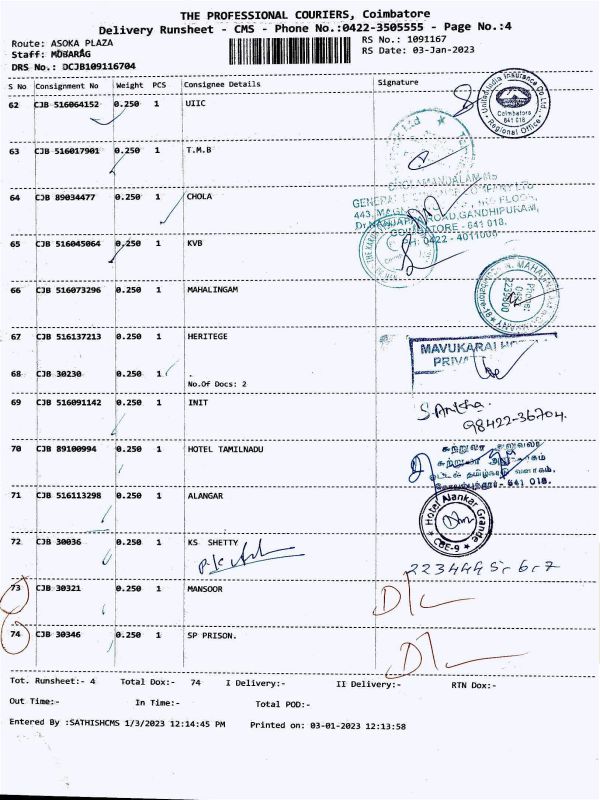 THE PROFESSIONAL COURIERS, Coimbatore
Delivery Runsheet - CMS - Phone No.:0422-3505555 - Page No.:4
Route: ASOKA PLAZA
RS No.: 1091167
Staff: MUBARAG
RS Date: 03-Jan-2023
DRS No.: DCJB109116704
S No Consignment No Weight PCS Consignee Details Signature
62 CJB 516064152 0.250 1 UIIC
United India Insurance Co. Ltd. Coimbatore 641 018 Regional Office
63 CJB 516017901 0.250 1 T.M.B
64 CJB 89034477 0.250 1 CHOLA
CHOLAMANDALAM MS
GENERAL INSURANCE COMPANY LTD
443, FLOOR,
Dr.NANJAPPA ROAD,GANDHIPURAM,
COIMBATORE - 641 018.
PH: 0422 - 4011000
65 CJB 516045064 0.250 1 KVB
66 CJB 516073296 0.250 1 MAHALINGAM
67 CJB 516137213 0.250 1 HERITEGE
MAVUKARAI
PRIVA
68 CJB 30230 0.250 1 .
No.Of Docs: 2
69 CJB 516091142 0.250 1 INIT
98422-36704.
70 CJB 89100994 0.250 1 HOTEL TAMILNADU
641 018.
71 CJB 516113298 0.250 1 ALANGAR
Hotel Alankar Grande CBE-9
72 CJB 30036 0.250 1 KS SHETTY
73 CJB 30321 0.250 1 MANSOOR
D/L
74 CJB 30346 0.250 1 SP PRISON.
D/L
Tot. Runsheet:- 4 Total Dox:- 74 I Delivery:- II Delivery:- RTN Dox:-
Out Time:- In Time:- Total POD:-
Entered By :SATHISHCMS 1/3/2023 12:14:45 PM Printed on: 03-01-2023 12:13:58